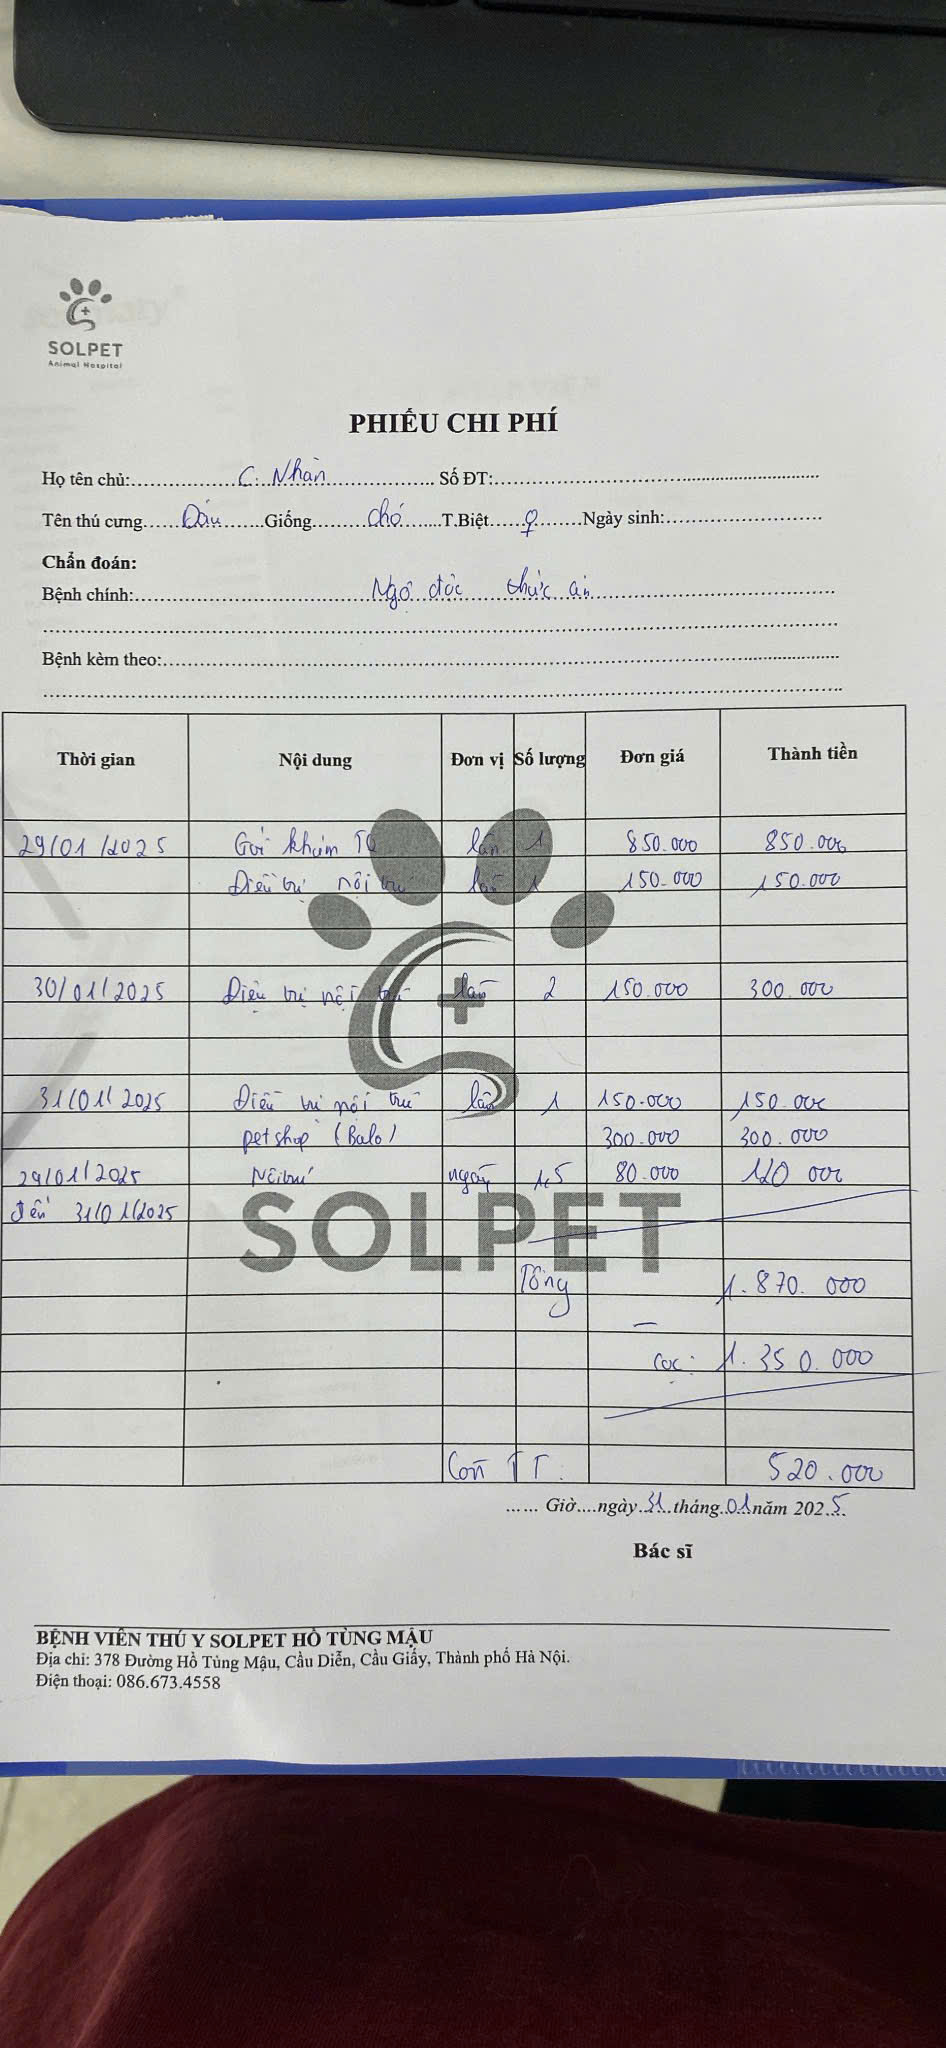 SOLPET
Animal Hospital
PHIẾU CHI PHÍ
Họ tên chủ: C. Nhàn Số ĐT:
Tên thú cưng Đậu Giống chó T.Biệt ♀ Ngày sinh:
Chẩn đoán:
Bệnh chính: Ngộ độc thức ăn
Bệnh kèm theo:
Thời gian Nội dung Đơn vị Số lượng Đơn giá Thành tiền
29/01/2025 Gói khám TQ lần 1 850.000 850.000
Điều trị nội trú lần 1 150.000 150.000
30/01/2025 Điều trị nội trú lần 2 150.000 300.000
31/01/2025 Điều trị nội trú lần 1 150.000 150.000
petshop (Balo) 300.000 300.000
29/01/2025 Nội trú ngày 1.5 80.000 120 000
đến 31/01/2025
SOLPET
Tổng 1.870.000
- cọc: 1.350.000
Còn TT. 520.000
...... Giờ....ngày 31 tháng 01 năm 2025
Bác sĩ
BỆNH VIÊN THÚ Y SOLPET HỒ TÙNG MẬU
Địa chỉ: 378 Đường Hồ Tùng Mậu, Cầu Diễn, Cầu Giấy, Thành phố Hà Nội.
Điện thoại: 086.673.4558